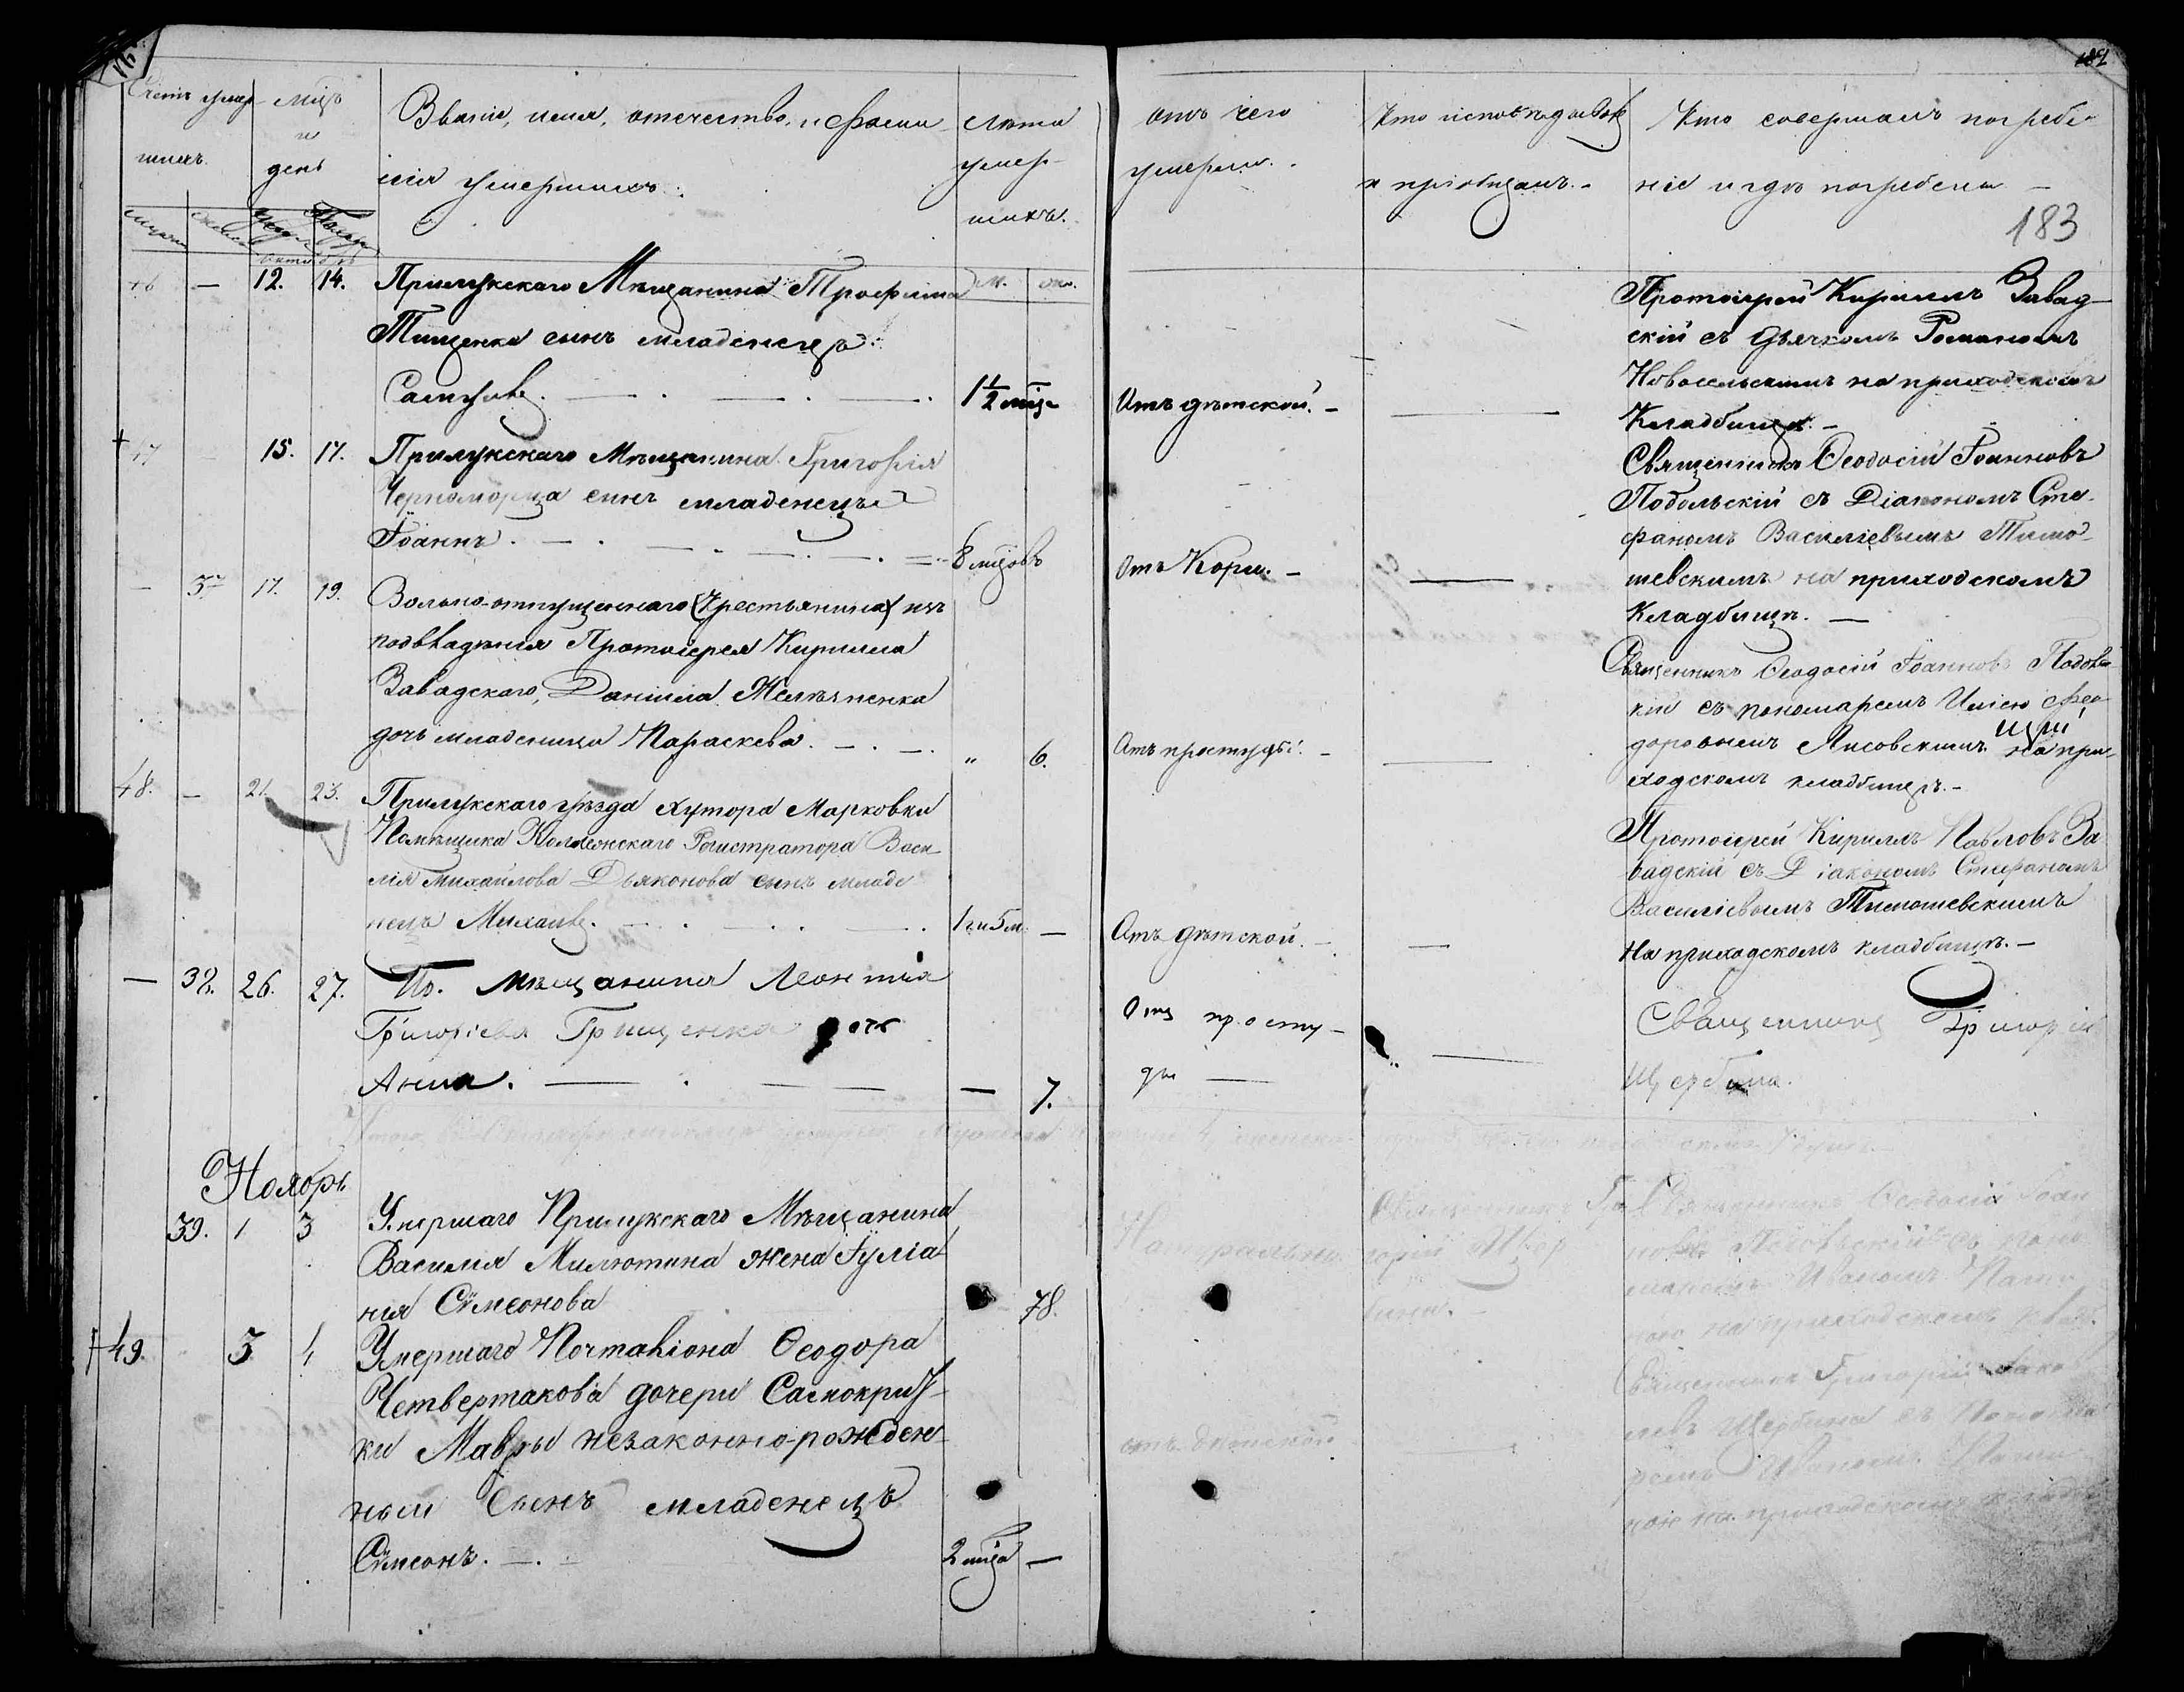 Счетъ умер-
шихъ.
мцъ
и
день
Званіе, имя, отечество, и фами
лія умершихъ.
лѣта
умер-
шихъ.
отъ чего
умерли.
Кто исповѣдывалъ
и пріобщалъ.
Кто совершалъ погребе-
ніе и гдѣ погребены
183
октябрь
м.
12. 14. Прилукскаго Мѣщанина Трофима
Тищенка сынъ младенецъ
Самуилъ. 1½ мца
Отъ дѣтской.
Протоіерей Кириллъ Завад-
скій съ дьячкомъ Романомъ
Новосельскимъ на приходскомъ
Кладбищѣ.
47 15. 17. Прилукскаго Мѣщанина Григорія
Черноморца сынъ младенецъ
Іоаннъ. 8 мцовъ
Отъ Кори.
Священникъ Ѳеодосій Іоанновъ
Подольскій съ Діакономъ Сте-
фаномъ Василіевымъ Тимо-
шевскимъ на приходскомъ
Кладбищѣ.
37 17. 19. Вольно-отпущеннаго (Крестьянина) изъ
подвладѣнія Протоіерея Кирилла
Завадскаго, Даніила
дочь младеница Параскева. 6.
Отъ простуды.
Священникъ Ѳеодосій Іоанновъ Подоль
кій съ пономаремъ Иліею Фео
доровымъ Лисовскимъ на при-
ходскомъ кладбищѣ.
48. 21. 23. Прилукскаго уѣзда хутора Марковки
Помѣщика Коллежскаго Регистратора Васи
лія Михайлова Дьяконова сынъ младе
нецъ Михаилъ. 1 г. и 5 м.
Отъ дѣтской.
Протоіерей Кириллъ Павловъ За
вадскій съ Діакономъ Стефаномъ
Василіевымъ Тимошевскимъ
На приходскомъ кладбищѣ.
38. 26. 27. Мѣщанина Леонтія
Григоріева Грищенка дочь
Анна. 7.
Отъ просту-
ды
Священникъ Григорій
Щербина.
Ноябрь
39. 1 3 Умершаго Прилукскаго Мѣщанина
Василія Милютина жена Іуліа
нія Сѵмеонова 78.
Натурально
Священникъ Гри
горій Щер
бина.
Священникъ Ѳеодосій Іоан
новъ Подольскій съ поно
на приходскомъ
49. 3 4 Умершаго Почталіона Ѳеодора
Четвертакова дочери Самокрит-
ки Мавры незаконно-рожден-
ный Сынъ младенецъ
Сѵмеонъ. 2 мца
отъ дѣтской
Священникъ Григорій Іаков
левъ Щербина съ Понома
ремъ Иваномъ
на приходскомъ